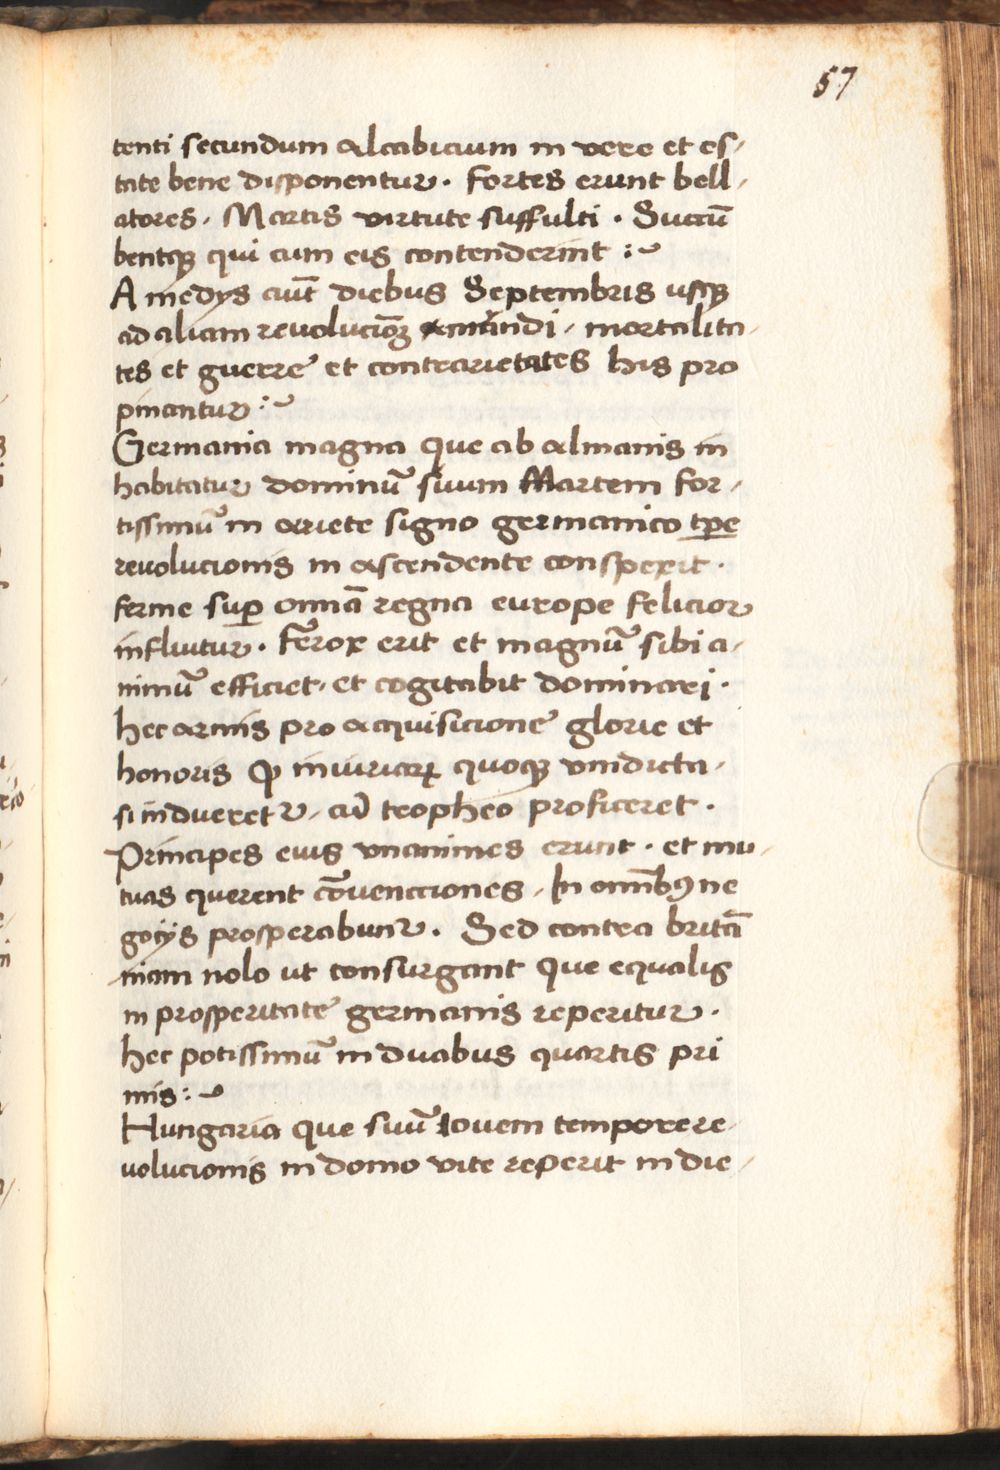 57
tenti secundum alcabicium in vere et es/
tate bene disponentur. Fortes erunt bell/
atores. Martis virtute suffulti. Succū
bentqꝫ qui cum eis contenderint :~
A medys aūt diebus Septembris usqꝫ
ad aliam revolucionē mundi / mortalita/
tes et guerre et contrarietates his pro
pinantur :~
Germania magna que ab almanis in
habitatur dominū suum Martem for/
tissimū in ariete signo germanico tꝑe
revolucionis in ascendente conspexit.
ferme suꝑ omnia regna europe felicior
influitur. Ferox erit et magnū sibi a/
nimū efficiet. et cogitabit dominari.
hec armis pro acquisicione glorie et
honoris iniuriaꝝ quoqꝫ vindicta.
si induereter / cū tropheo proficeret.
Principes eius unanimes erunt. et mu/
tuas querent cōvencciones. In omībꝯ ne
gocijs prosperabunt᷑. Sed contra britā
niam nolo ut consurgant que equalis
in prosperitate germanis reperitur.
hec potissimū in duabus quartis pri
mis :~
Hungaria que suū Iovem tempore re/
volucionis in domo vite reperit in die /